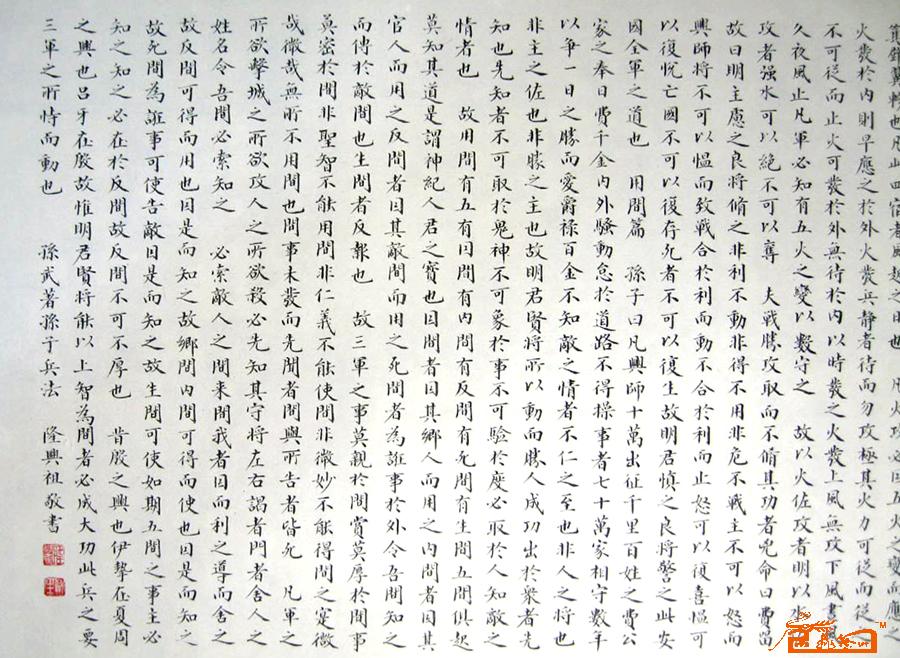 翼軫也凡此四宿者風起之日也　凡火攻必因五火之變而應之
火發於內則早應之於外火發兵靜者待而勿攻極其火力可從而從之
不可從而止火可發於外無待於內以時發之火發上風無攻下風晝風
久夜風止凡軍必知有五火之變以數守之　故以火佐攻者明以水
攻者強水可以絕不可以奪　夫戰勝攻取而不脩其功者兇命曰費留
故曰明主慮之良將脩之非利不動非得不用非危不戰主不可以怒而
興師將不可以慍而致戰合於利而動不合於利而止怒可以復喜慍可
以復悅亡國不可以復存死者不可以復生故明君慎之良將警之此安
國全軍之道也　用間篇　孫子曰凡興師十萬出征千里百姓之費公
家之奉日費千金內外騷動怠於道路不得操事者七十萬家相守數年
以爭一日之勝而愛爵祿百金不知敵之情者不仁之至也非人之將也
非主之佐也非勝之主也故明君賢將所以動而勝人成功出於衆者先
知也先知者不可取於鬼神不可象於事不可驗於度必取於人知敵之
情者也　故用間有五有因間有內間有反間有死間有生間五間俱起
莫知其道是謂神紀人君之寶也因間者因其鄉人而用之內間者因其
官人而用之反間者因其敵間而用之死間者為誑事於外令吾間知之
而傳於敵間也生間者反報也　故三軍之事莫親於間賞莫厚於間事
莫密於間非聖智不能用間非仁義不能使間非微妙不能得間之寔微
哉微哉無所不用間也間事未發而先聞者間與所告者皆死　凡軍之
所欲擊城之所欲攻人之所欲殺必先知其守將左右謁者門者舍人之
姓名令吾間必索知之　必索敵人之間來間我者因而利之導而舍之
故反間可得而用也因是而知之故鄉間內間可得而使也因是而知之
故死間為誑事可使告敵因是而知之故生間可使如期五間之事主必
知之知之必在於反間故反間不可不厚也　昔殷之興也伊摯在夏周
之興也呂牙在殷故惟明君賢將能以上智為間者必成大功此兵之要
三軍之所恃而動也　孫武著孫子兵法　隆興祖敬書